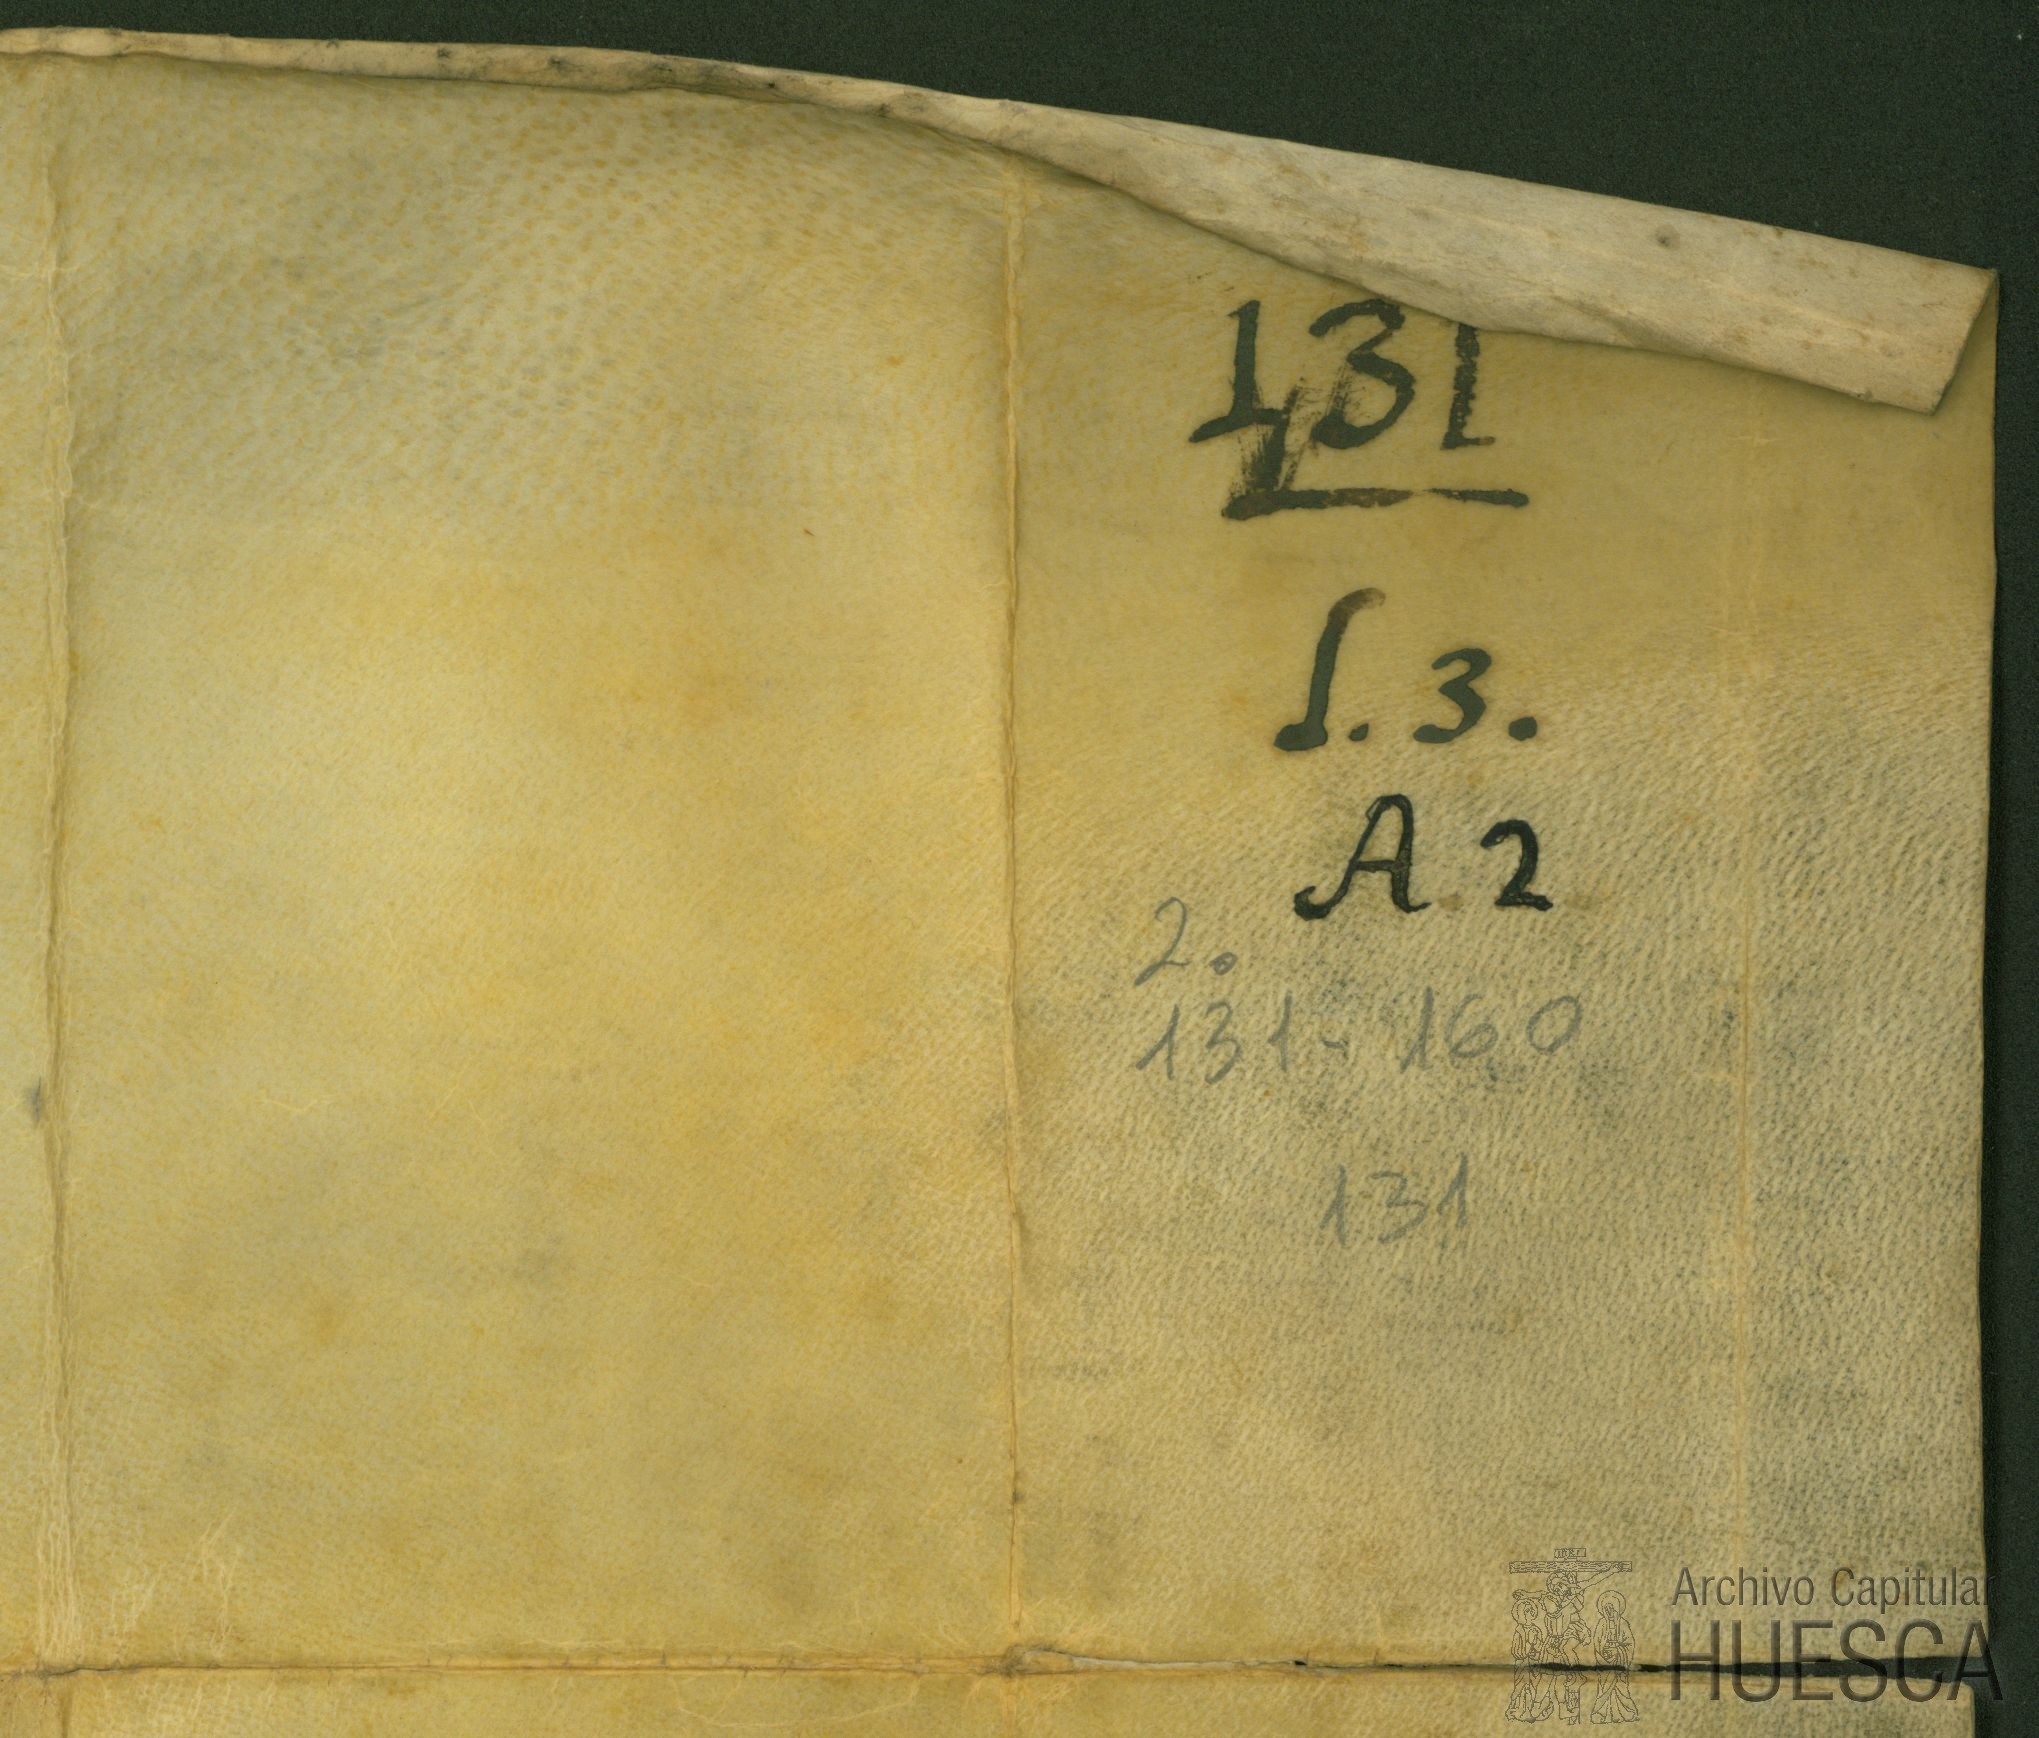 131
I. 3.
A 2
2.
131-160
131
INRI
Archivo Capitular
HUESCA